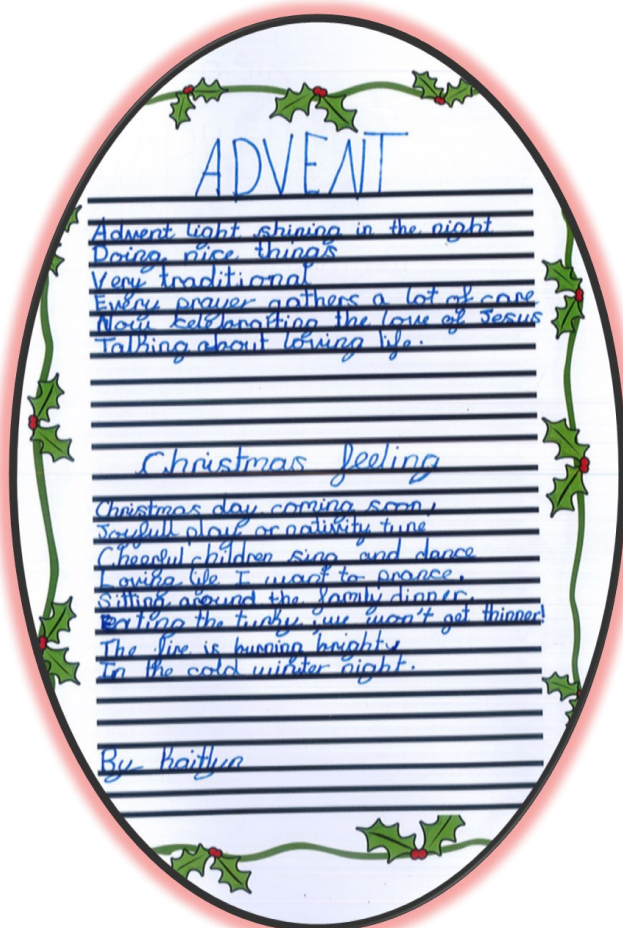 ADVENT
Advent light shining in the night
Doing nice things
Very traditional
Every prayer gathers a lot of care
Now celebraiting the love of Jesus
Talking about loving life.
Christmas feeling
Christmas day coming soon,
Joyfull play or nativity tune
Cheerful children sing and dance
Loving life I want to prance.
Sitting around the family dinner.
Eating the turky, we won't get thinner!
The fire is burning brightly
In the cold winter night.
By Kaitlyn